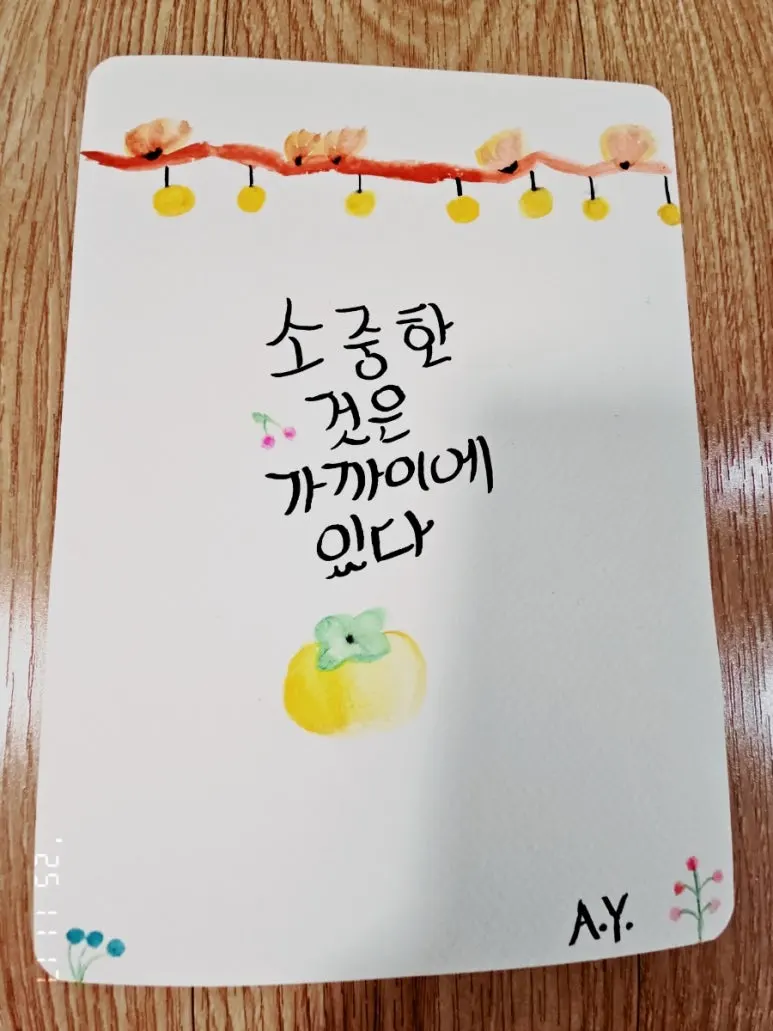 소중한
것은
가까이에
있다
A.Y.
'25 11 17